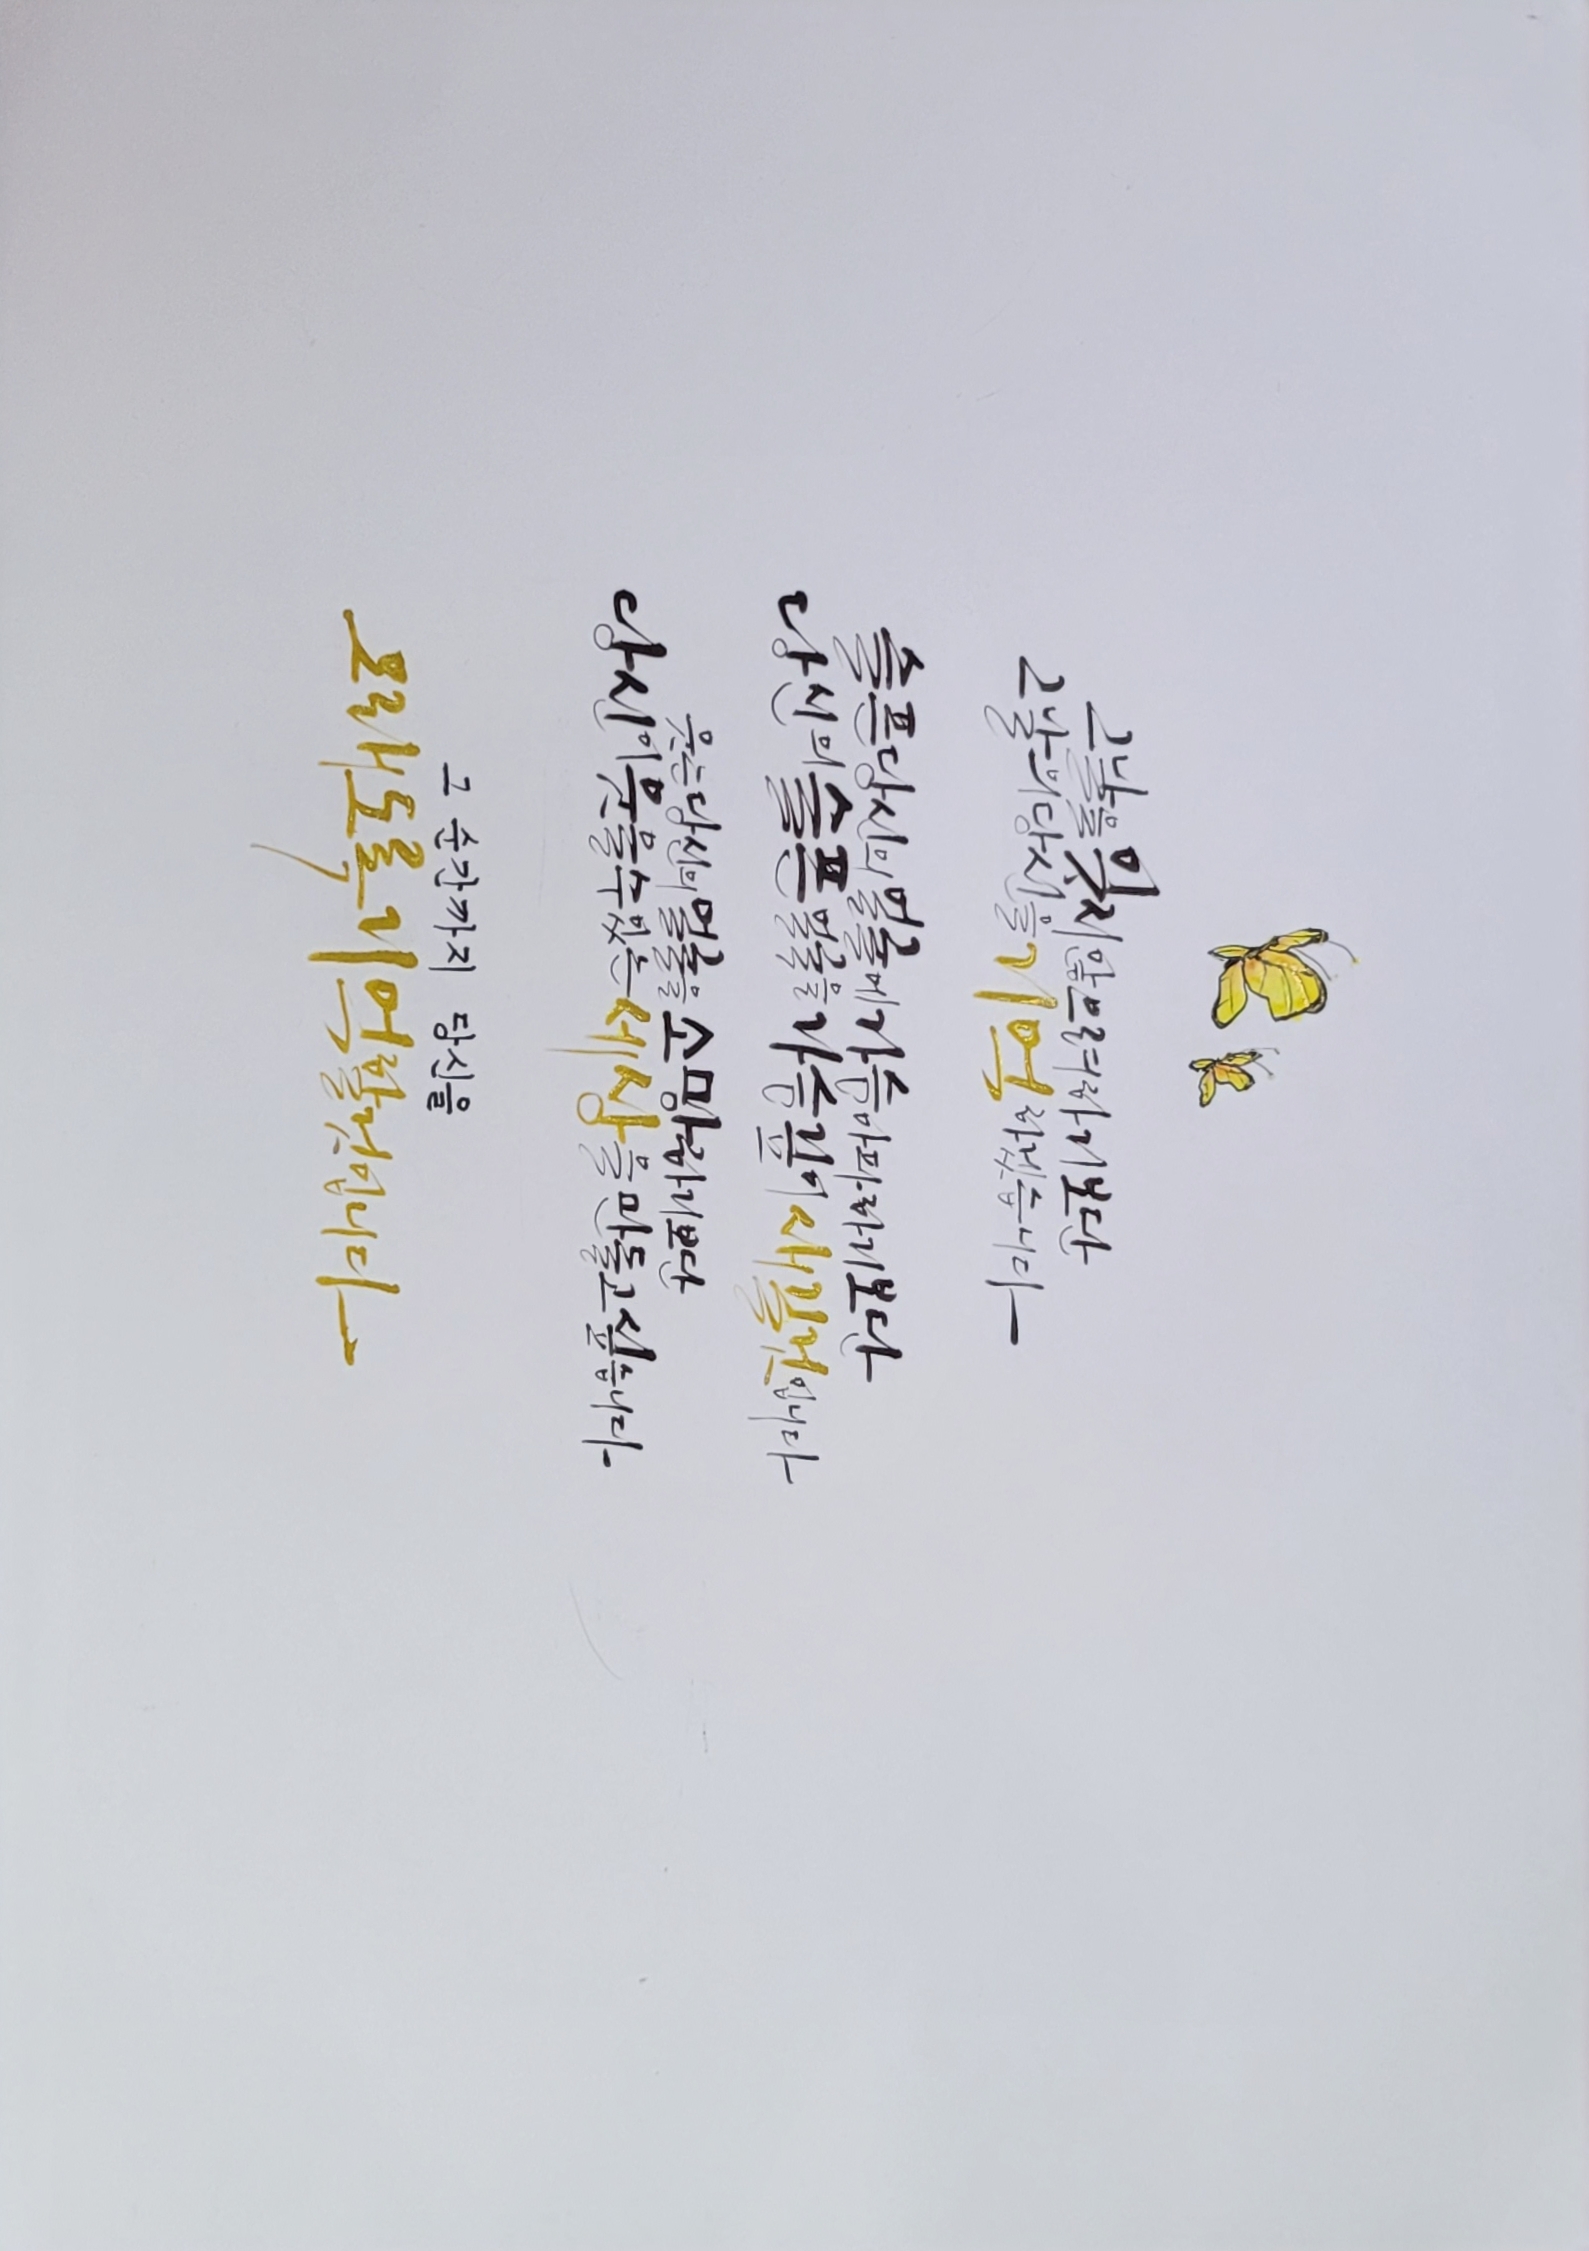 그날을 잊지 않으려 하기보단
그날의 당신을 기억하겠습니다
슬픈 당신의 얼굴에 가슴 아파하기보단
당신의 슬픈 얼굴을 가슴 깊이 새길 것입니다
웃는 당신의 얼굴을 소망하기보단
당신이 웃을 수 있는 세상을 만들고 싶습니다
그 순간까지 당신을
오래도록 기억할 것입니다